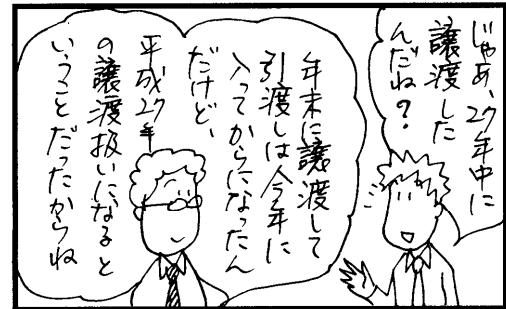 じゃあ、27年中に
譲渡した
んだね?
年末に譲渡して
引渡しは今年に
入ってからになったん
だけど、
平成27年
の譲渡扱いになると
いうことだったからね